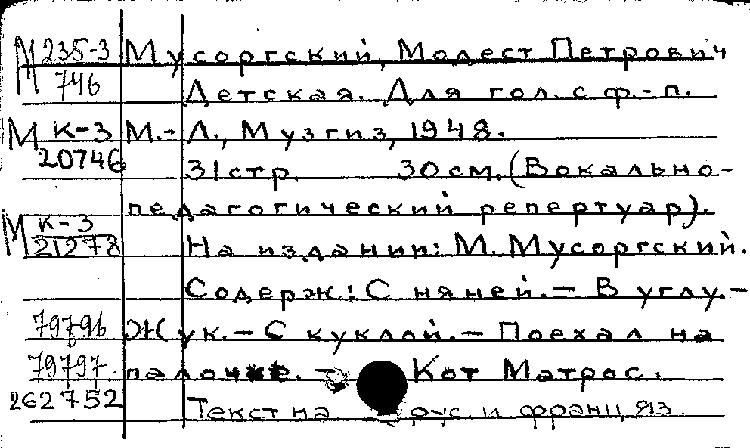 М 235-3 Мусоргский, Модест Петрович
746 Детская. Для гол. с ф.-п.
М К-3 М.-Л., Музгиз, 1948.
20746 31 стр. 30 см. (Вокально-
педагогический репертуар).
М К-3
21278 На издании: М. Мусоргский.
Содерж.: С няней. – В углу. –
79796 Жук. – С куклой. – Поехал на
79797 палочке. – Кот Матрос.
262752 Текст на рус. и франц. яз.